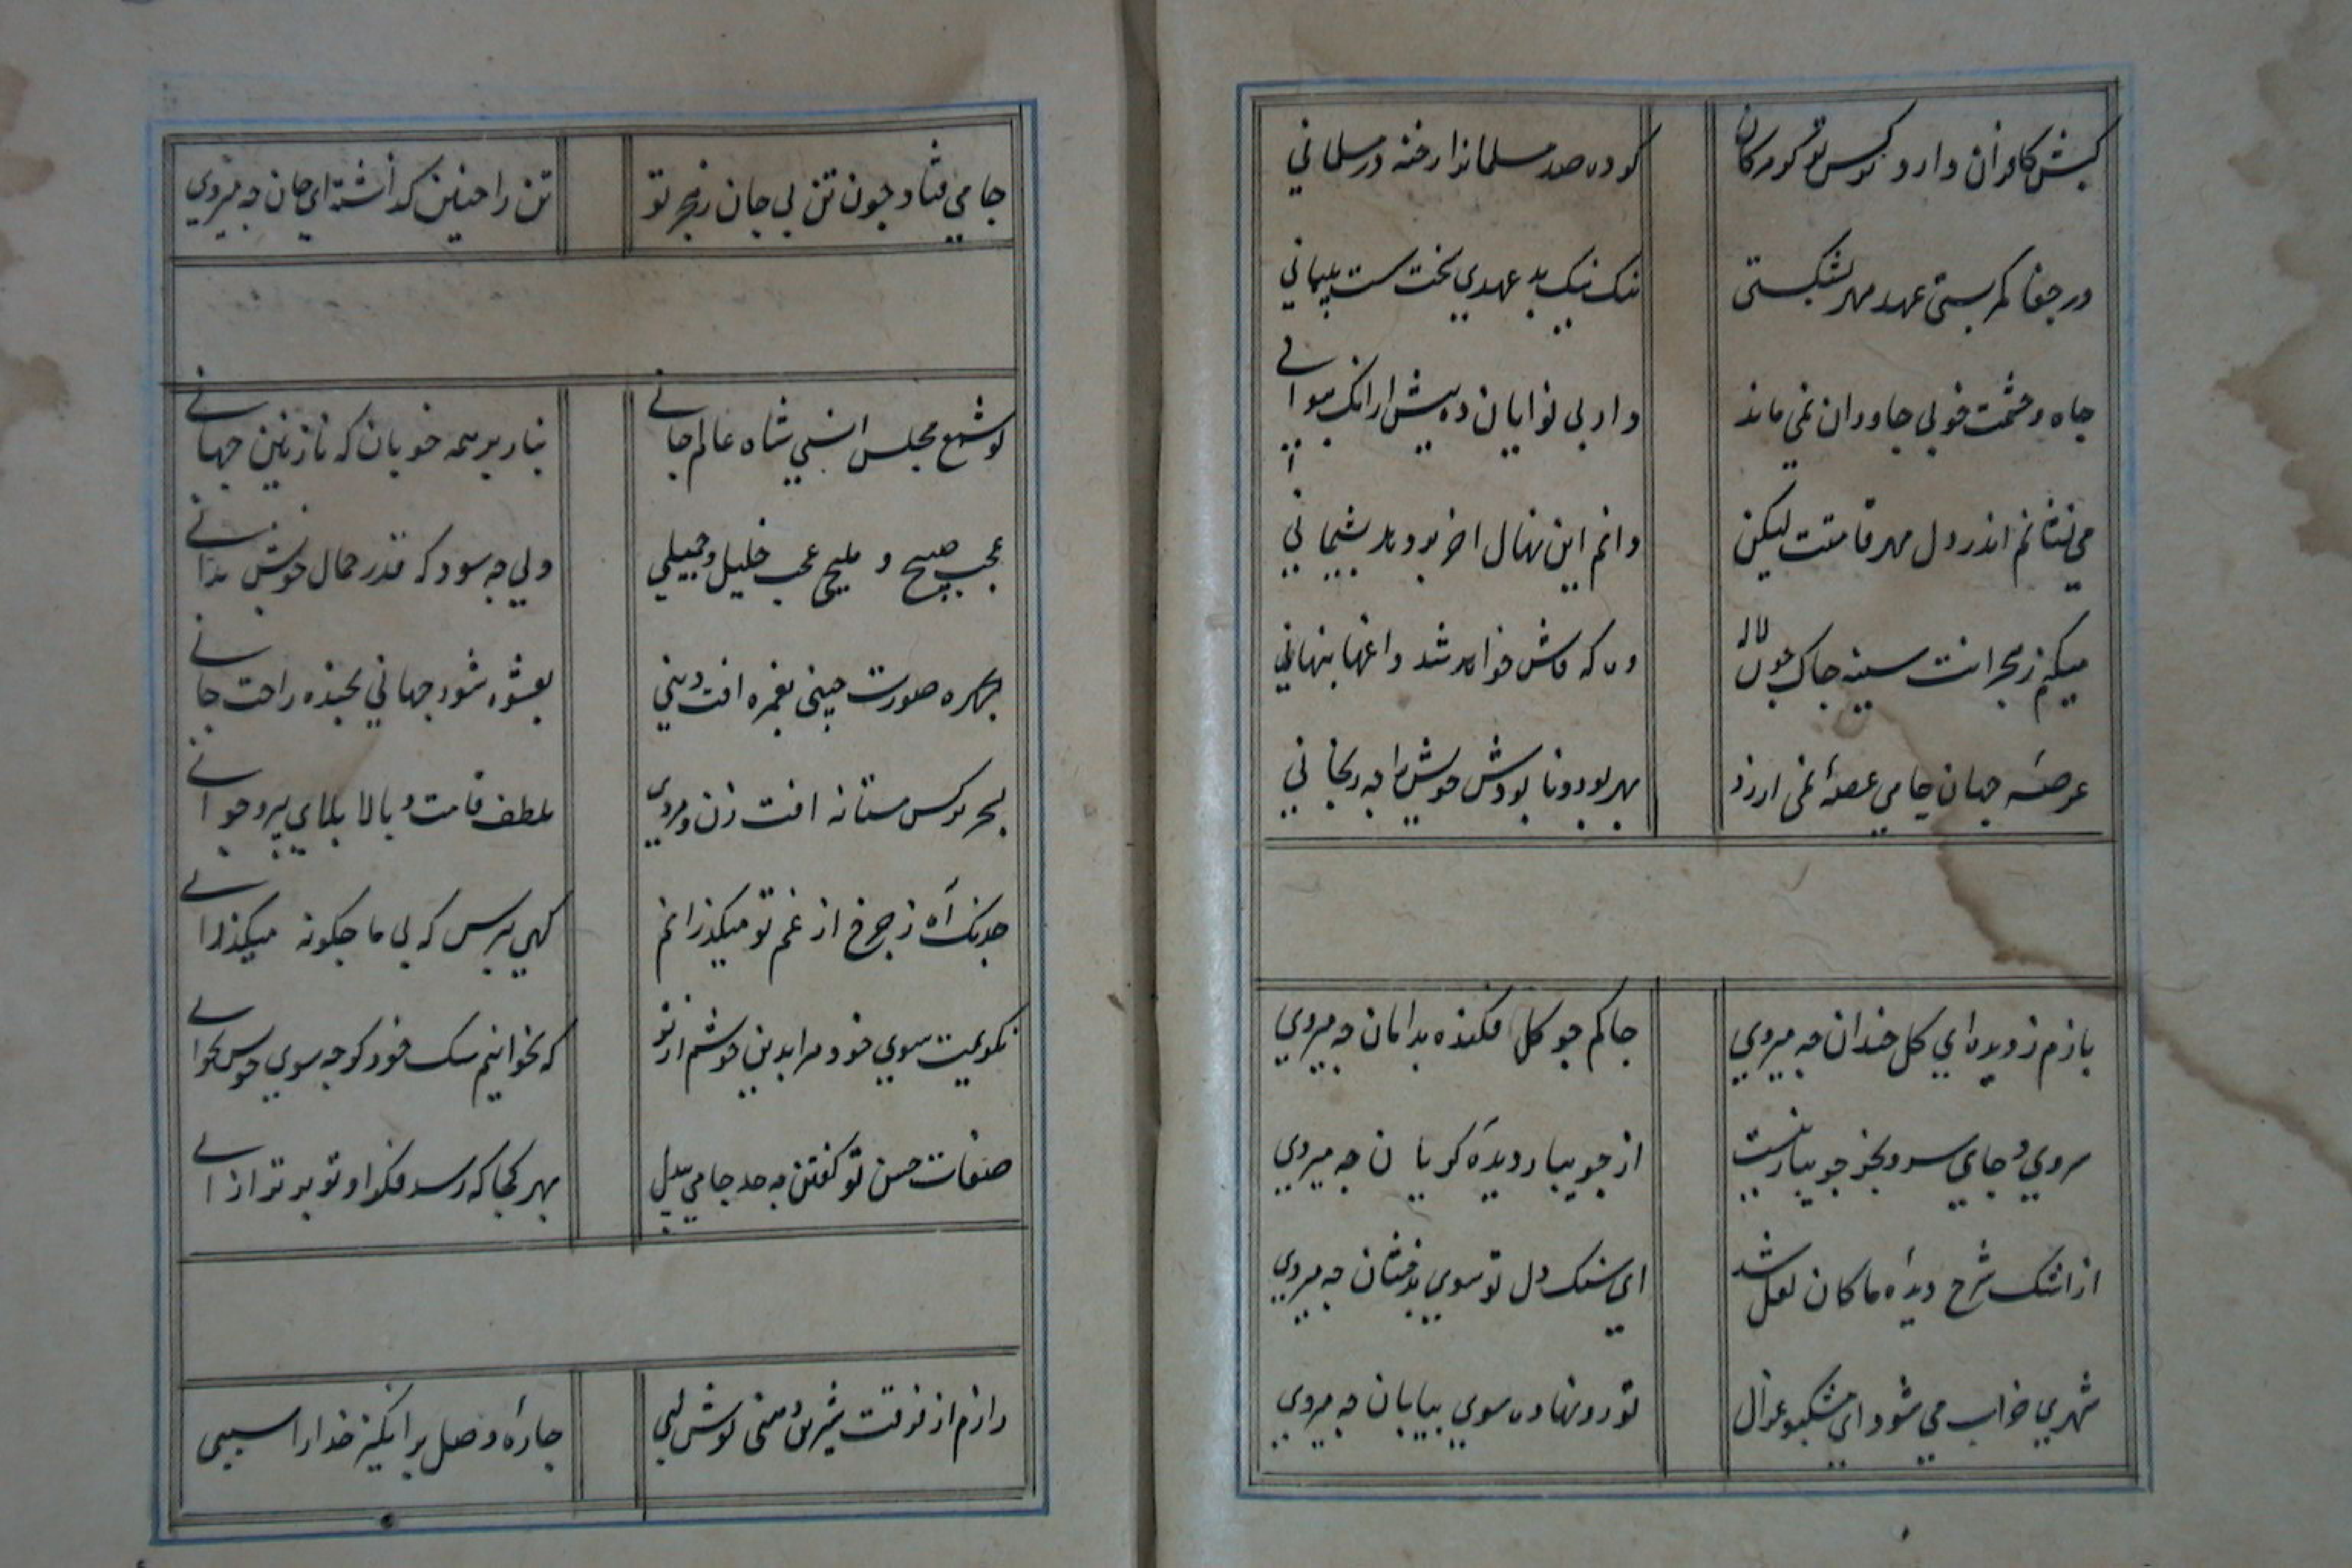 کیش کافران دارد نرکس تو کو مرکان کرده صد مسلمانرا رخنه در مسلمانی
در جفا کمر بستی عهد مهر بشکستی نیک نیک بد عهدی سخت سست پیمانی
جاه و حشمت خوبی جاودان نمی ماند داد بی نوایان ده پیش ازانک نتوانی
می نشانم اندر دل مهر قامتت لیکن دانم این نهال اخر بر دهد پشیمانی
میکنم ز هجرانت سینه چاک چون لاله وه که فاش خواهد شد داغهای پنهانی
عرصهٔ جهان جامی غصهٔ نمی ارزد بهر بود و نابودش خویش را چه رنجانی
بازم ز دیده ای کل خندان چه میروی چاکم چو کل فکنده بدامان چه میروی
سروی و جای سرو بجز جویبار نیست از جویبار دیدهٔ کریان چه میروی
از اشک سرخ دیدهٔ ما کان لعل شد ای سنک دل تو سوی بدخشان چه میروی
شهری خراب می شود ای مشکبو غزال تو رو نهاده سوی بیابان چه میروی
جامی فتاد چون تن بی جان ز هجر تو تن را چنین کذاشته ای جان چه میروی
تو شمع مجلس انسی شاه عالم جانی بناز بر همه خوبان که نازنین جهانی
عجب صبیح و ملیح عجب خلیل و جمیلی ولی چه سود که قدر جمال خویش ندانی
بچهره صورت چینی بغمزه افت دینی بعشوه شور جهانی بخنده راحت جانی
بسحر نرکس مستانه افت زن و مردی بلطف قامت و بالا بلای پیر و جوانی
خدنک آه ز چرخ از غم تو میکذرانم کهی نپرسی که بی ما چکونه میکذرانی
نکویمت سوی خود مرا بدین خوشم از تو که بخوانیم سک خود کرچه سوی خویش نخوانی
صفات حسن تو کفتن نه حد جامی بیدل بهر کجا که رسد فکر او تو برتر ازانی
دارم از فرقت شیرین دهنی نوش لبی چارهٔ وصل برانکیز خدارا سببی